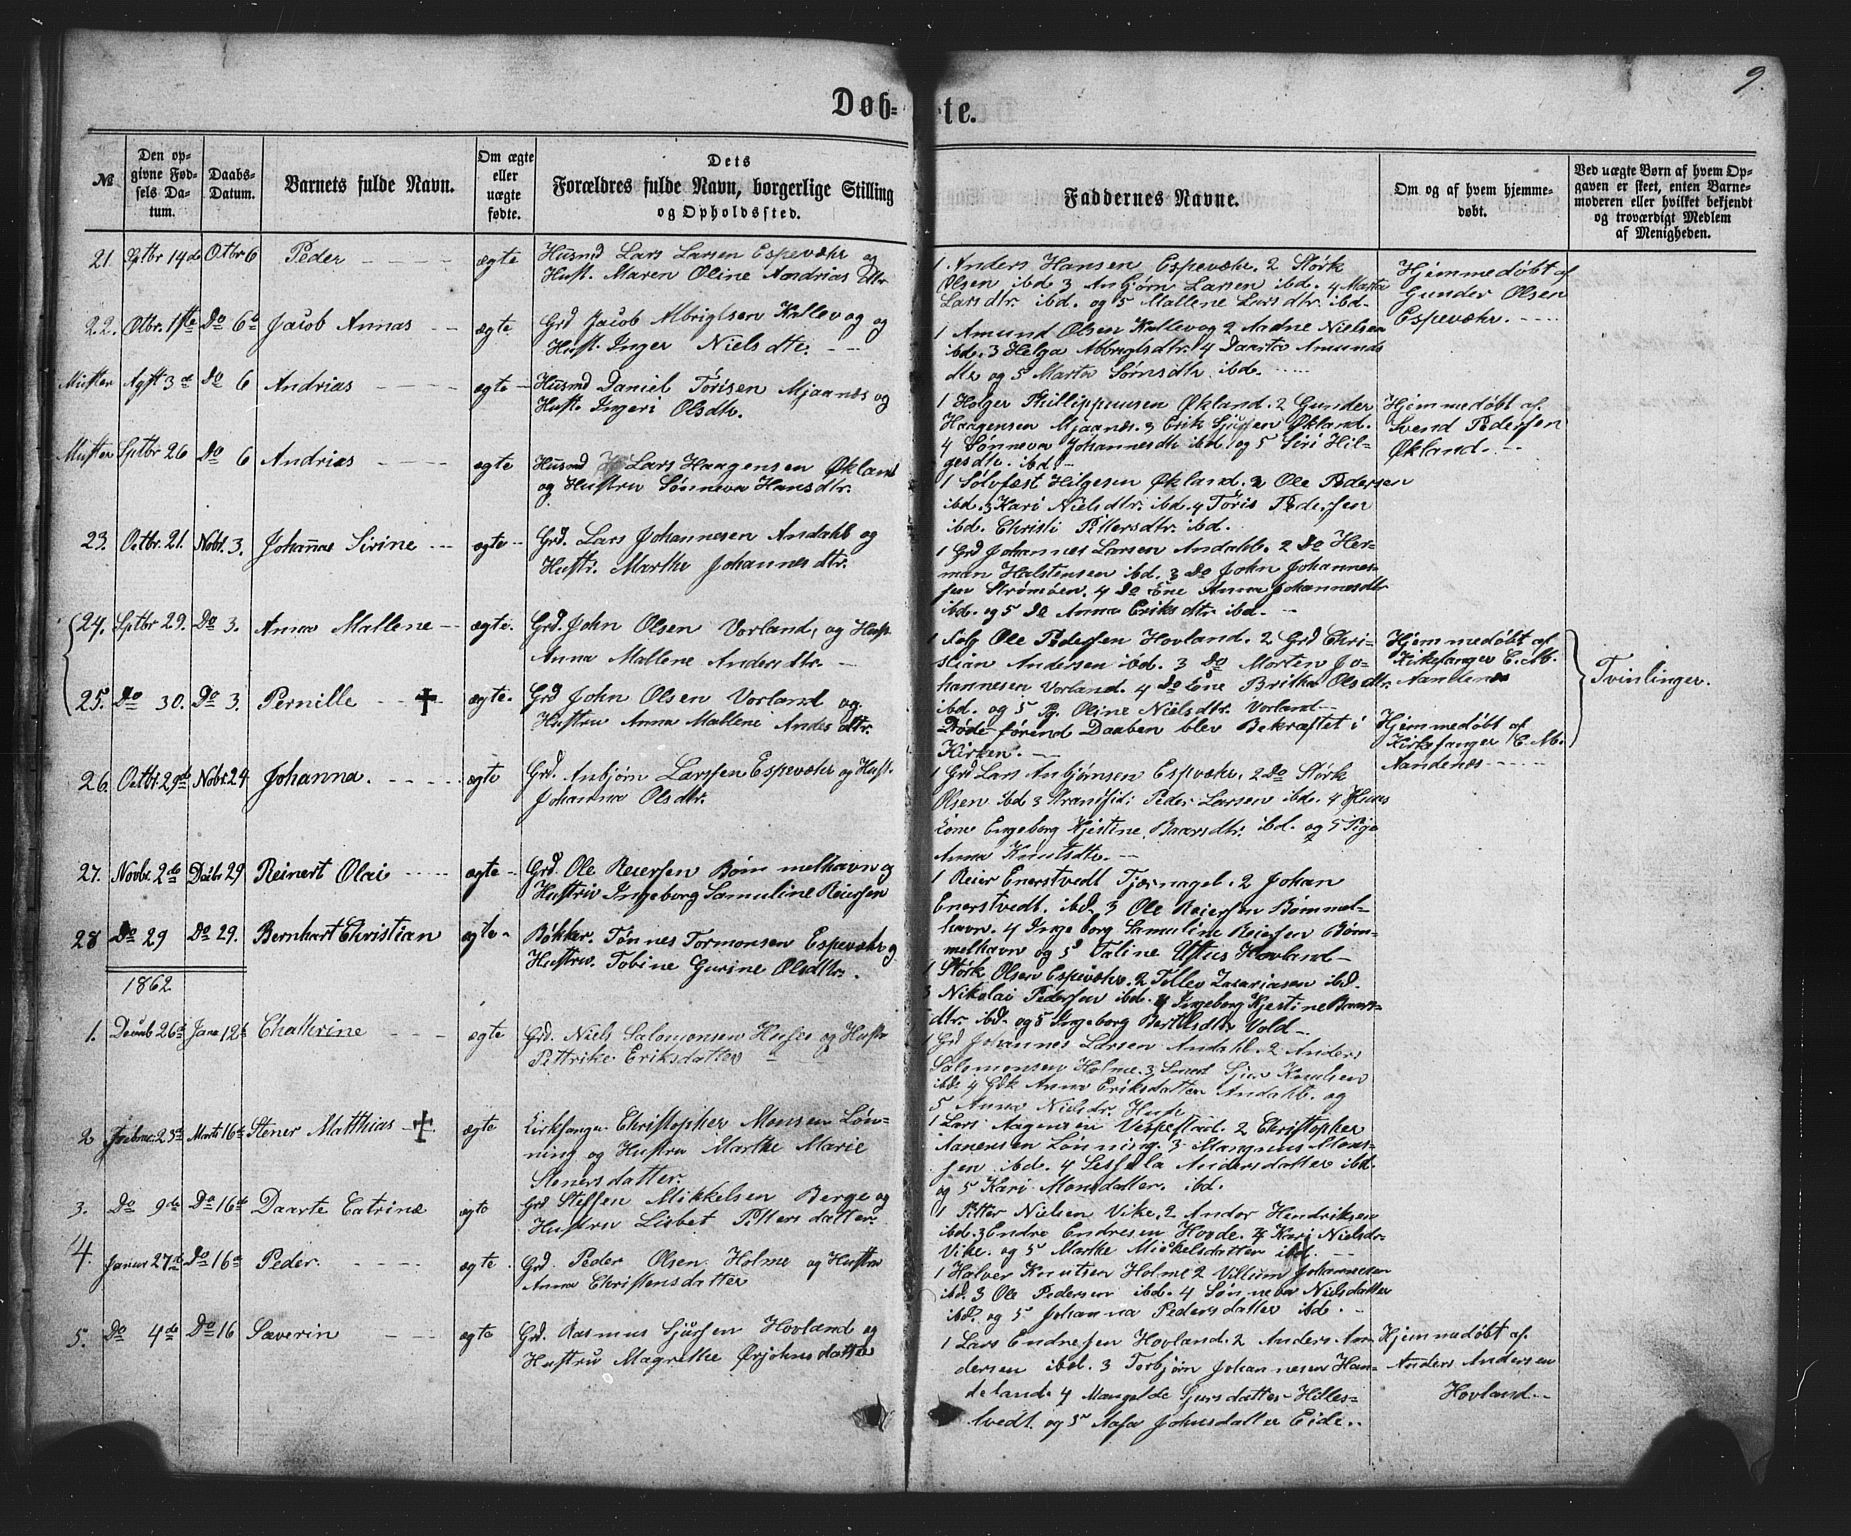 9.
Døb-te.
№
Den op-
givne Fød-
sels Da-
tum.
Daabs-
Datum.
Barnets fulde Navn.
Om ægte
eller
uægte
fødte.
Dets
Forældres fulde Navn, borgerlige Stilling
og Opholdssted.
Faddernes Navne.
Om og af hvem hjemme-
døbt.
Ved uægte Børn af hvem Op-
gaven er skeet, enten Barne-
moderen eller hvilket bekjendt
og troværdigt Medlem
af Menigheden.
21. Sptbr 14de Otbr 6 Peder ægte Husmd Lars Larsen Espevæhr og
Hust. Maren Oline Andrias Dtr
1 Anders Hansen Espevæhr. 2 Størk
Olsen ibd 3 Anbjørn Larsen ibd. 4 Marta
Larsdtr. ibd. og 5 Mallene Larsdtr. ibd.
Hjemmedøbt af
Gunder Olsen
Espevæhr.
22. Otbr. 1ste Do 6 Jacob Annas ægte Grd Jacob Albrigtsen Kallevog og
Hust. Inger Nielsdtr.
1 Amund Olsen Kallevog 2 Aadne Nielsen
ibd. 3 Helga Albrigtsdtr. 4 Daarta Amunds
dtr og 5 Marta Sørnsdtr ibd.
Muster Agst 3de Do 6 Andrias ægte Husmd Daniel Tørisen Mjaanæs og
Hust. Ingeri Olsdtr.
1 Holger Phillippeusen Økland. 2 Gunder
Haagensen Mjaanæs. 3 Erik Sjursen Økland.
4 Sønneva Johannesdtr ibd. og 5 Siri Hil-
gesdtr. ibd.
Hjemmedøbt af.
Svend Pedersen
Økland.
Muster Sptbr 26 Do 6 Andrias ægte Husmd Lars Haagensen Økland
og Hustru Sønneva Hansdtr.
1 Sølvfæst Hilgesen Økland. 2 Ole Pedersen
ibd. 3 Kari Nielsdtr. ibd. 4 Tøris Pedersen
ibd. Christi Pittersdtr. ibd.
23. Octbr. 21. Nobr. 3. Johannas Sirine ægte Grd. Lars Johannesen Andahl og
Hustr. Marthe Johannesdtr.
1 Grd Johannes Larsen Andahl. 2 Do Her-
man Halstensen ibd. 3 Do John Johannes-
sen Strømøen. 4 Do Ene Anna Johannesdtr
ibd. og 5 Do Anna Eriksdtr ibd.
24. Sptbr 29. Do 3. Anna Mallene ægte. Grd. John Olsen Vorland, og Hust.
Anna Mallene Andersdtr.
1 Ole Pedersen Hovland. 2 Grd Chri-
stian Andersen ibd. 3 Do Morten Jo-
hannesen Vorland. 4 Do Ene Britha Olsdtr.
ibd. og 5 Pg. Oline Nielsdtr. Vorland
Hjemmedøbt af
Kirkesanger C. M.
Nandenæs
Tvinlinger.
25. Do 30. Do 3. Pernille ægte. Grd John Olsen Vorland og
Hustru Anna Mallene Andersdtr.
Døde førend Daaben blev Bekræftet i
Kirken.
Hjemmedøbt af
Kirkesanger C. M.
Nandenæs
26. Octbr. 29de Nobr. 24 Johanna. ægte Grd. Anbjørn Larssen Espevæhr og Hust.
Johanna Olsdtr.
1 Grd Lars Anbjørnsen Espevæhr. 2 Do Størk
Olsen ibd 3 Strandsid: Peder Larsen ibd. 4 Huus
Kone Engeborg Kjestine Baarsdtr. ibd. og 5 Pige
Anna Knutsdtr.
27. Novbr. 2de Dcbr 29 Reinert Olai ægte Grd. Ole Reiersen Bømmelhavn og
Hustru Ingeborg Samuline Reiersen
1 Reier Enerstvedt Tjærnagel. 2 Johan
Enerstvedt. ibd. 3 Ole Reiersen Bømmel-
havn. 4 Ingeborg Samuline Reiersen Bøm-
melhavn og 5 Taline Hovland
28 Do 29 Do 29. Bernhart Christian ægte Bøkker. Tønnes Tormonsen Espevæhr og
Hustru. Tobine Gurine Olsdtr.
1 Størk Olsen Espevæhr. 2 Tollev Zacariasen ibd.
3 Nikolai Pedersen ibd. 4 Ingeborg Kjestine Baars-
dtr. ibd. og 5 Ingeborg Bertelsdtr Vold
1862
1. Decmb 26 Janu 12 Chathrine ægte Grd. Niels Salomonsen Husse og Hustr
Pittrike Eriksdatter
1 Grd Johannes Larsen Andahl 2 Anders
Salomonsen Holme. 3 Sjur Knutsen
ibd. 4 Gdk Anna Eriksdatter Andahl. og
5 Anna Nielsdr. Huse
2 Febrr. 25 Marts 16 Stener Matthias ægte Kirksanger Christopher Monsen Løn-
ning og Hustru Marthe Marie
Stenersdatter.
1 Lars Aagensen Vespestad. 2 Christopher
Aanensen Lønning. 3 Mangnus Mons-
sen ibd. 4 Andersdatter ibd.
og 5 Kari Monsdatter. ibd.
3. Do 9de Do 16 Daarte Catrine ægte Grd Steffen Mikkelsen Berge og
Hustru Lisbet Pittersdatter.
1 Pitter Nielsen Vike, 2 Andor Hendriksen
ibd. 3 Endre Endresen Hovde. 4 Kari Nielsdr
Vike. og 5 Marthe Mickelsdatter ibd.
4. Januar 27 Do 16 Peder. ægte. Grd Peder Olsen Holme og Hustru
Anna Christensdatter
1 Halver Knutsen Holme 2 Villum Johannesen
ibd. 3 Ole Pedersen ibd. 4 Sønneva Nielsdatter
ibd. og 5 Johanna Pedersdatter ibd.
5. Do 4de Do 16 Saverin ægte Grd. Rasmus Sjursen Hovland og
Hustru Magrethe Ørjohnsdatter
1 Lars Endresen Hovland. 2 Anders An-
dersen ibd. 3 Torbjørn Johannesen Han-
deland. 4 Mangelde Sjursdatter Hilles-
tvedt. og 5 Aasa Johnsdatter Eide.
Hjemmedøbt af.
Anders Andersen
Hovland